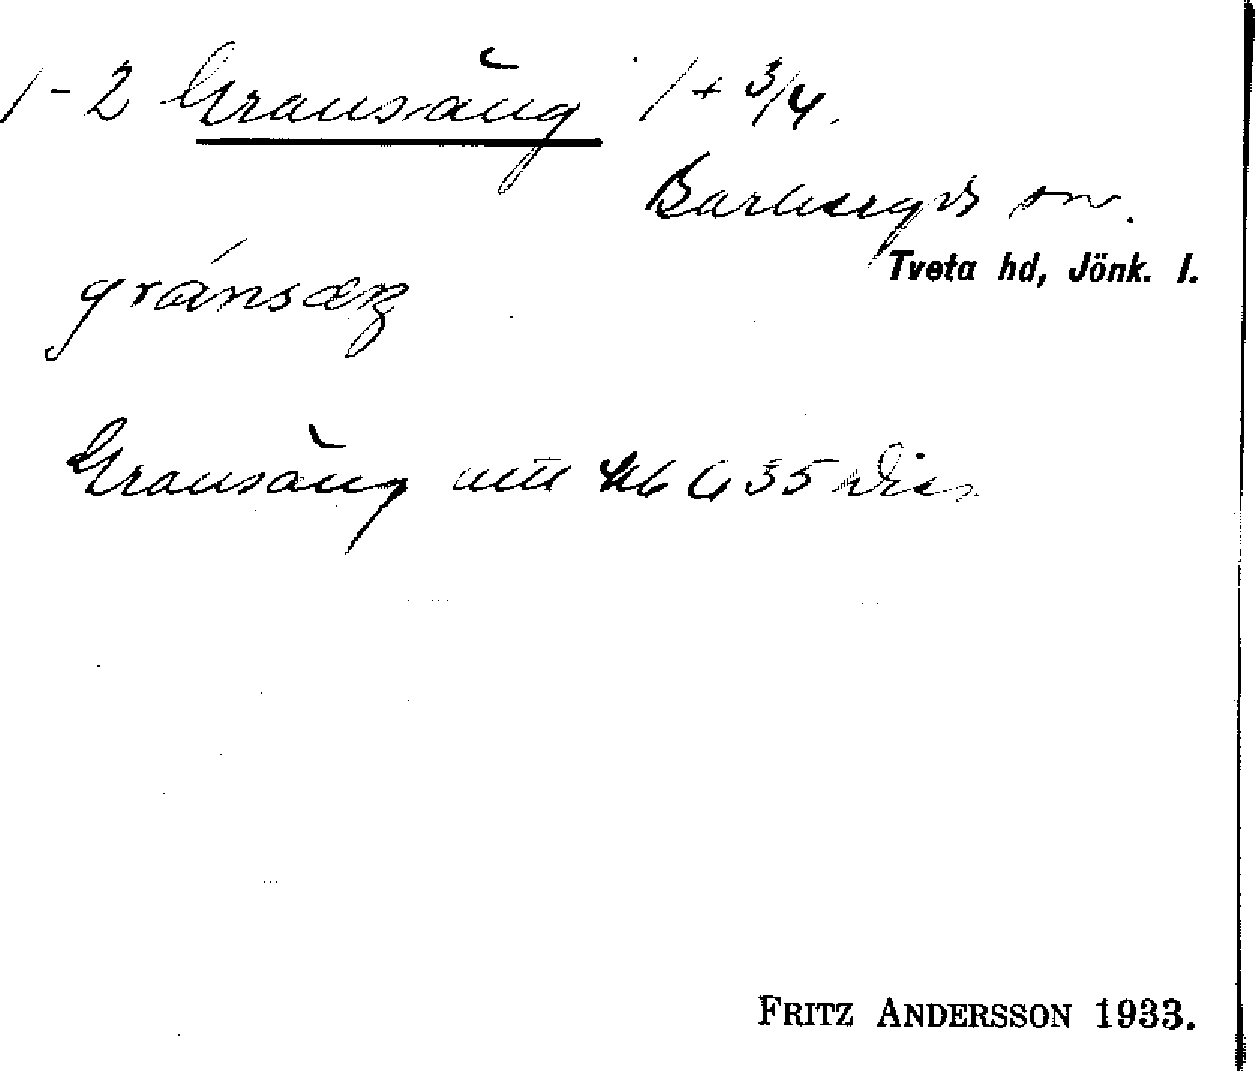 1-2 Gransäng 1 + 3/4.
Barkeryds sn.
Tveta hd, Jönk. l.
gránsæŋ
Gransäng
FRITZ ANDERSSON 1933.